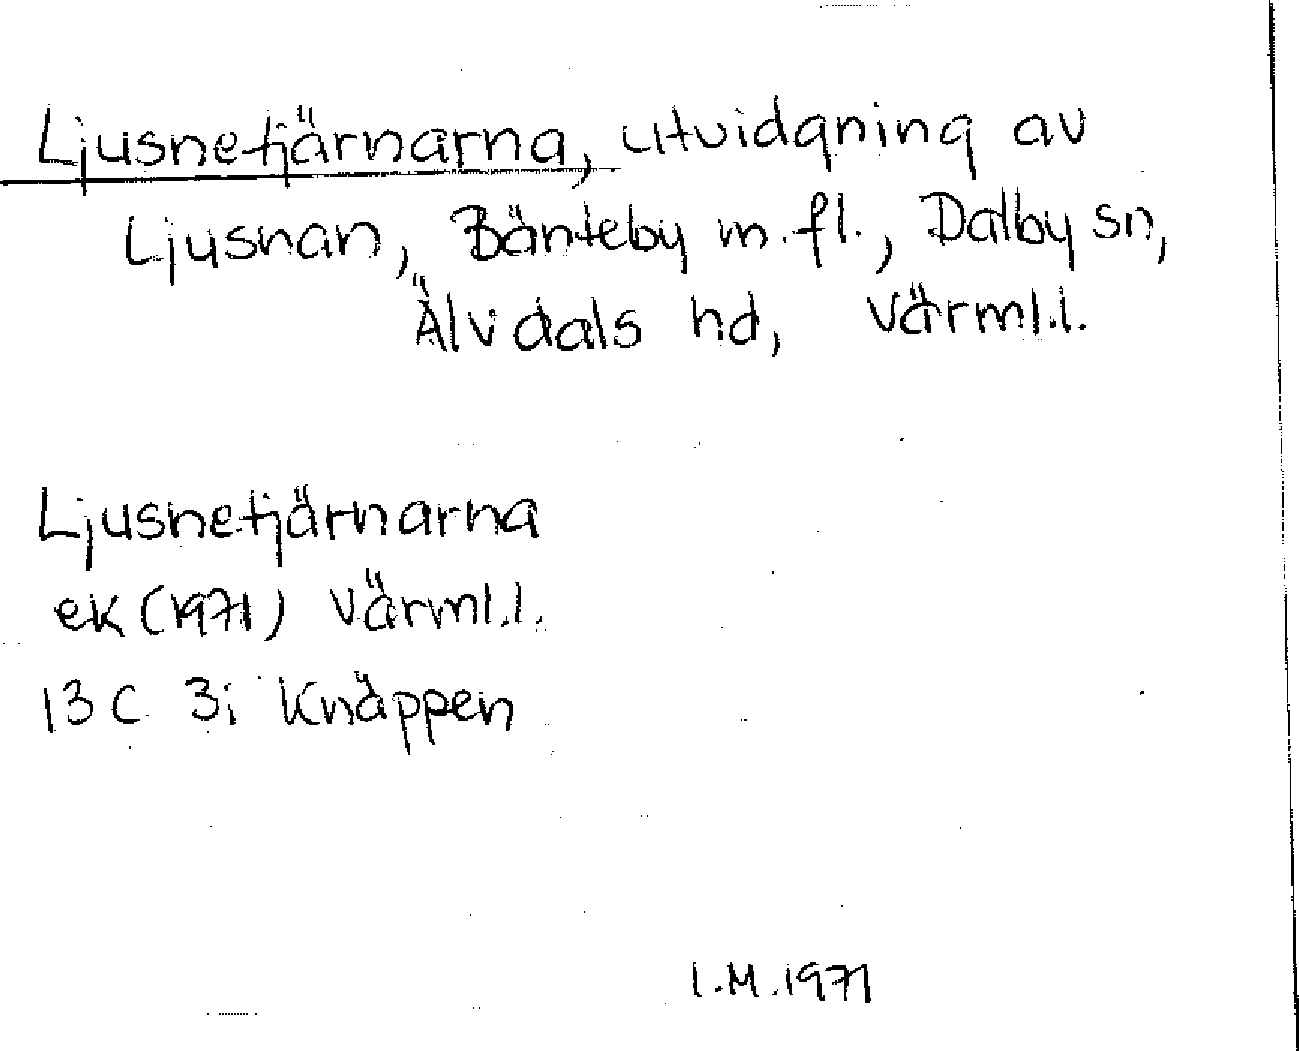 Ljusnetjärnarna, utvidgning av
Ljusnan, Bänteby m.fl., Dalby sn,
Älvdals hd, Värml.l.
Ljusnetjärnarna
ek (1971) Värml.l.
13 C 3i Knäppen
I.M.1971